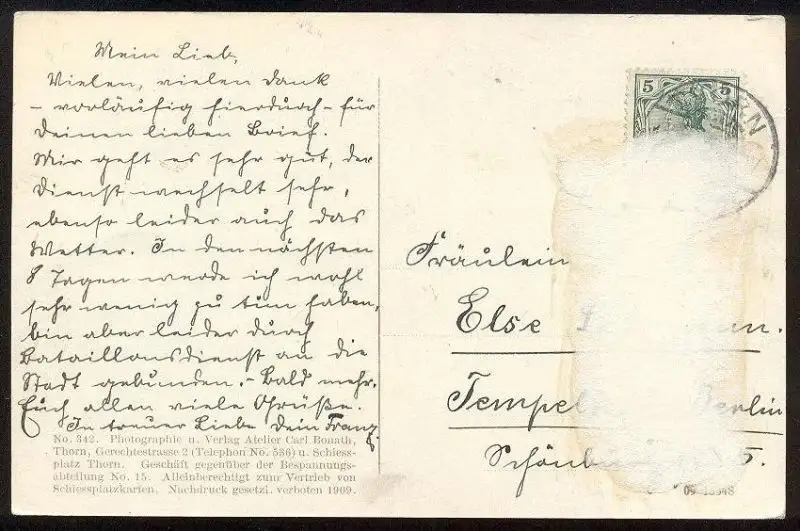 Mein Lieb,
Vielen, vielen Dank
- vorläufig hierdurch - für
Deinen lieben Brief.
Mir geht es sehr gut, der
Dienst wechselt sehr,
ebenso leider auch das
Wetter. In den nächsten
8 Tagen werde ich wohl
sehr wenig zu tun haben,
bin aber leider durch
Bataillonsdienst an die
Stadt gebunden. - Bald mehr.
Euch allen viele Grüße.
In treuer Liebe Dein Franz
No. 342. Photographie u. Verlag Atelier Carl Bonath,
Thorn, Gerechtestrasse 2 (Telephon No. 536) u. Schiess-
platz Thorn. Geschäft gegenüber der Bespannungs-
abteilung No. 15. Alleinberechtigt zum Vertrieb von
Schiessplatzkarten. Nachdruck gesetzl. verboten 1909.
5 5
Fräulein
Else
Berlin